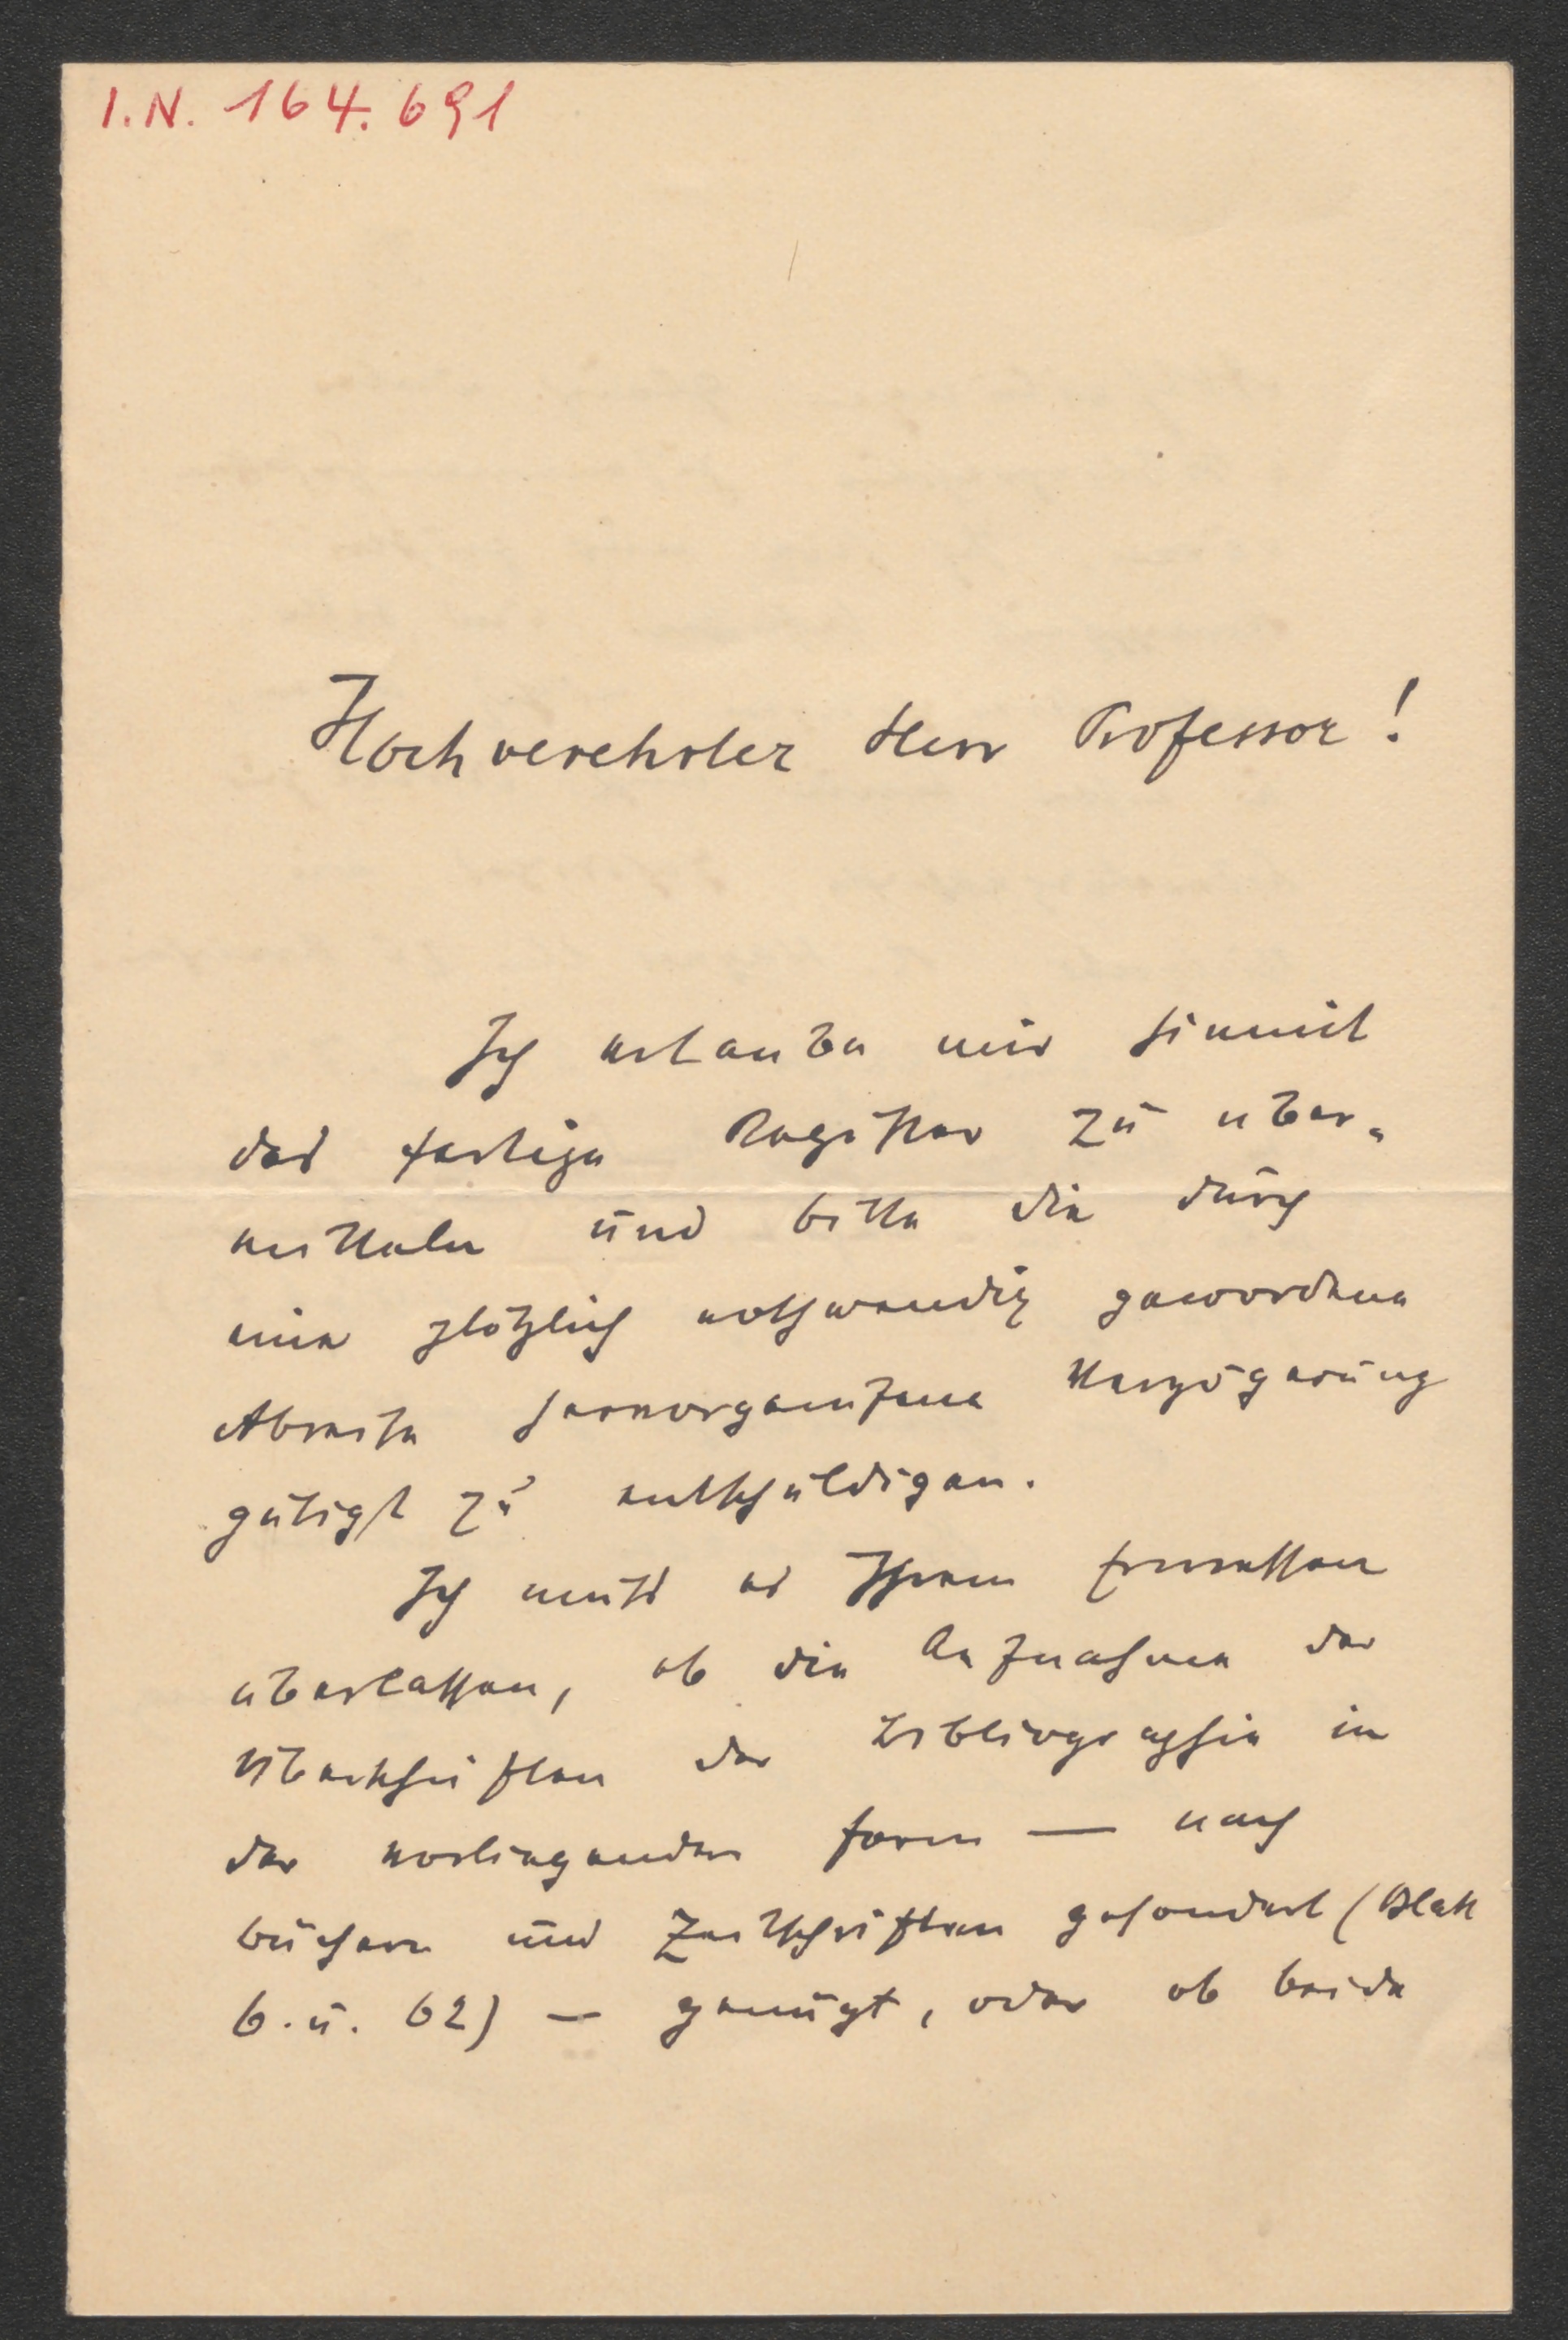 I.N. 164.691
Hochverehrter Herr Professor!
Ich erlaube mir hiemit
das fertige Register zu über-
mitteln und bitte die durch
eine plötzlich nothwendig gewordene
Abreise hervorgerufene Verzögerung
gütigst zu entschuldigen.
Ich muß es Ihrem Ermessen
überlassen, ob die Aufnahme der
Überschriften der Bibliographie in
der vorliegenden Form — nach
Büchern und Zeitschriften gesondert (Blatt
6. u. 62) — genügt, oder ob beide